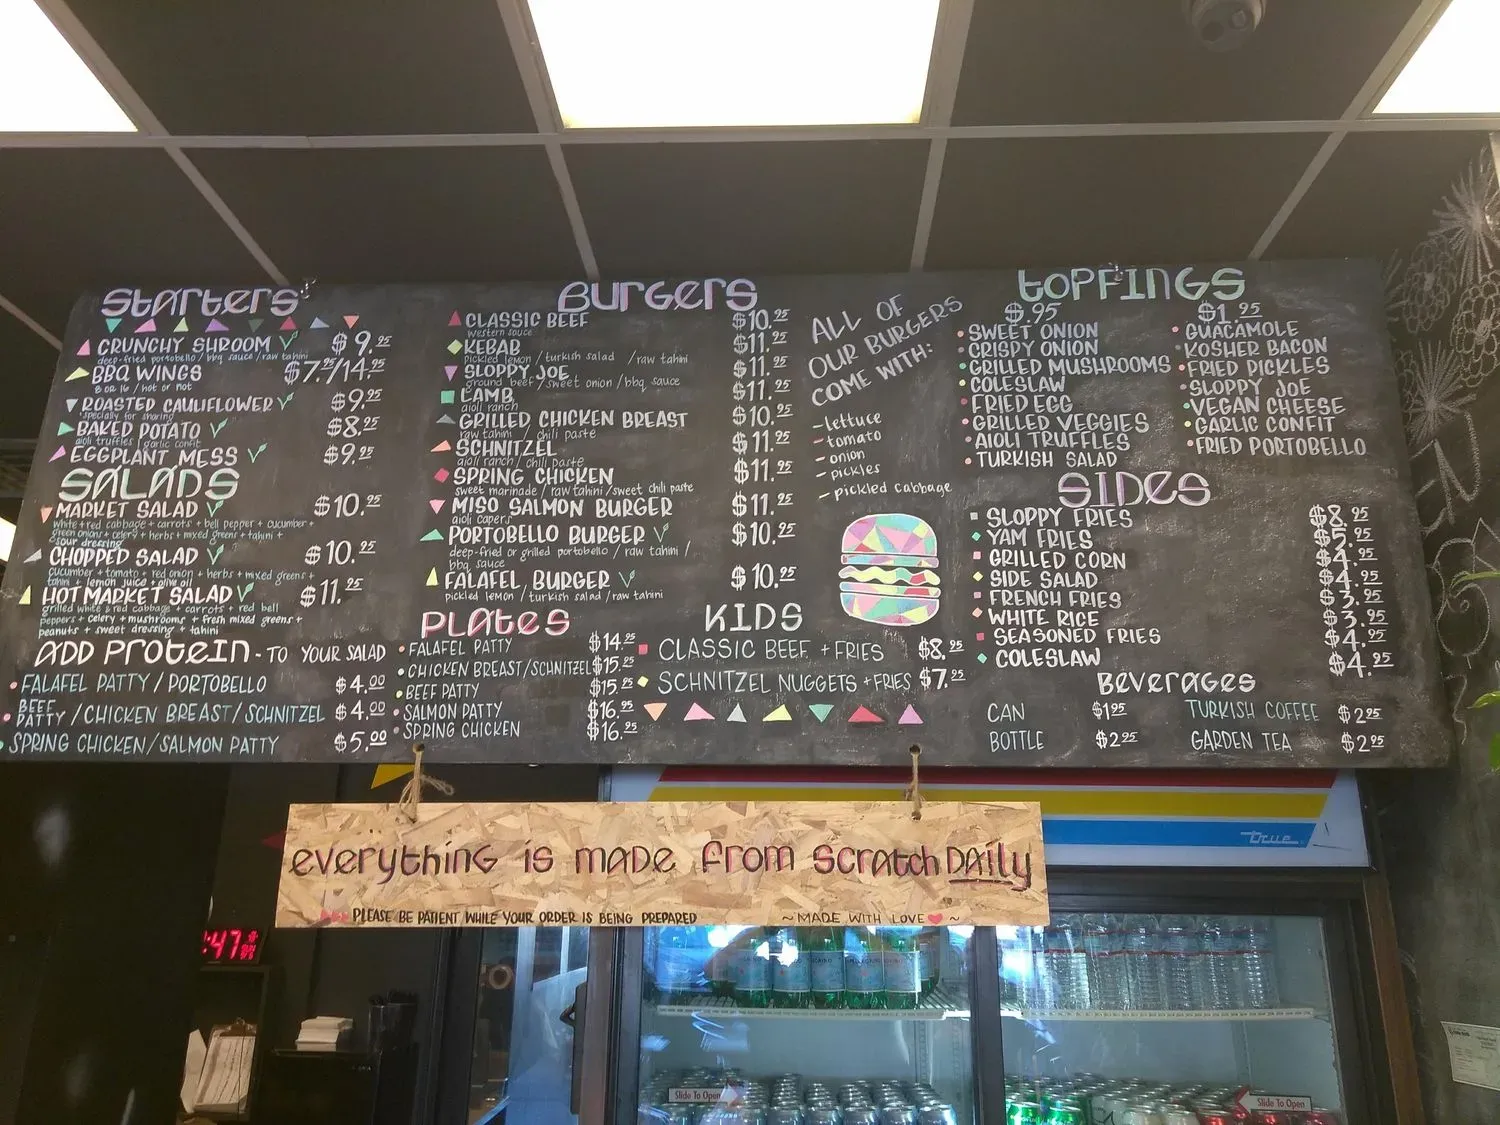 Starters
CRUNCHY SHROOM $9.95
deep-fried portobello / bbq sauce / raw tahini
BBQ WINGS $7.95/14.95
8 or 16 / hot or not
ROASTED CAULIFLOWER $9.95
*specially for sharing
BAKED POTATO $8.25
aioli truffles / garlic confit
EGGPLANT MESS $9.95
SALADS
MARKET SALAD $10.95
white + red cabbage + carrots + bell pepper + cucumber +
green onions + celery + herbs + mixed greens + tahini +
sour dressing
CHOPPED SALAD $10.95
cucumber + tomato + red onion + herbs + mixed greens +
tahini + lemon juice + olive oil
HOT MARKET SALAD $11.95
grilled white & red cabbage + carrots + red bell
peppers + celery + mushrooms + fresh mixed greens +
peanuts + sweet dressing + tahini
ADD Protein - TO YOUR SALAD
FALAFEL PATTY / PORTOBELLO $4.00
BEEF PATTY / CHICKEN BREAST / SCHNITZEL $4.00
SPRING CHICKEN / SALMON PATTY $5.00
BURGERS
CLASSIC BEEF $10.95
western sauce
KEBAB $11.95
pickled lemon / turkish salad / raw tahini
SLOPPY JOE $11.95
ground beef / sweet onion / bbq sauce
LAMB $11.95
aioli ranch
GRILLED CHICKEN BREAST $10.95
raw tahini chili paste
SCHNITZEL $11.95
aioli ranch / chili paste
SPRING CHICKEN $11.95
sweet marinade / raw tahini / sweet chili paste
MISO SALMON BURGER $11.95
aioli capers
PORTOBELLO BURGER $10.95
deep-fried or grilled portobello / raw tahini /
bbq sauce
FALAFEL BURGER $10.95
pickled lemon / turkish salad / raw tahini
PLATES
FALAFEL PATTY $14.95
CHICKEN BREAST/SCHNITZEL $15.95
BEEF PATTY $15.95
SALMON PATTY $16.95
SPRING CHICKEN $16.95
KIDS
CLASSIC BEEF + FRIES $8.95
SCHNITZEL NUGGETS + FRIES $7.95
ALL OF
OUR BURGERS
COME WITH:
- lettuce
- tomato
- onion
- pickles
- pickled cabbage
TOPPINGS
$.95
SWEET ONION
CRISPY ONION
GRILLED MUSHROOMS
COLESLAW
FRIED EGG
GRILLED VEGGIES
AIOLI TRUFFLES
TURKISH SALAD
$1.95
GUACAMOLE
KOSHER BACON
FRIED PICKLES
SLOPPY JOE
VEGAN CHEESE
GARLIC CONFIT
FRIED PORTOBELLO
SIDES
SLOPPY FRIES $8.95
YAM FRIES $5.95
GRILLED CORN $4.95
SIDE SALAD $4.95
FRENCH FRIES $3.95
WHITE RICE $3.95
SEASONED FRIES $4.95
COLESLAW $4.95
BEVERAGES
CAN $1.95
BOTTLE $2.95
TURKISH COFFEE $2.95
GARDEN TEA $2.95
everything is made from scratch DAILY
PLEASE BE PATIENT WHILE YOUR ORDER IS BEING PREPARED
~ MADE WITH LOVE ~
true
:47
Slide To Open
Slide To Open